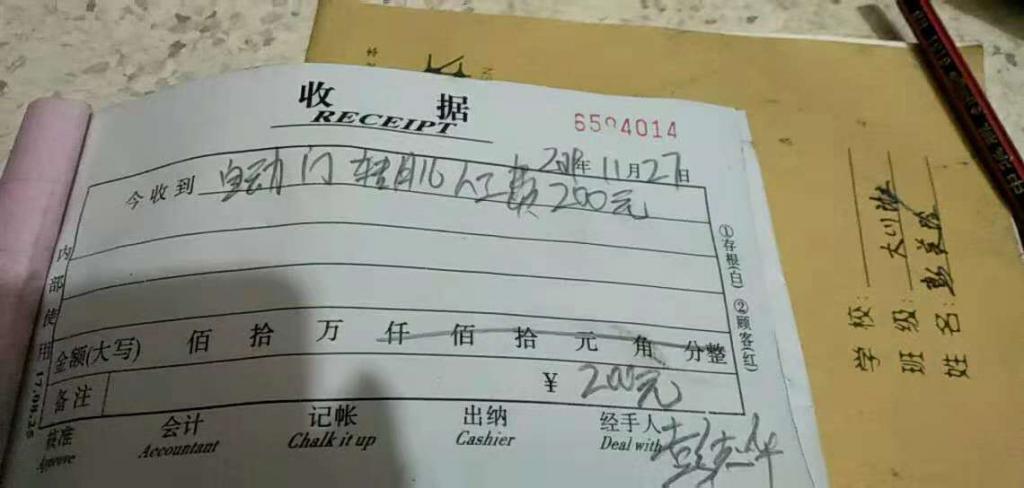 收 据
RECEIPT
6504014
2018年 11月27日
今收到 自动门 人工费200元
内部使用 17.08.25
①存根(白) ②顾客(红)
金额(大写) 佰 拾 万 仟 佰 拾 元 角 分整
备注 ¥ 200元
核准 会计 记帐 出纳 经手人
Approve Accountant Chalk it up Cashier Deal with
学 校:
班 级:
姓 名: